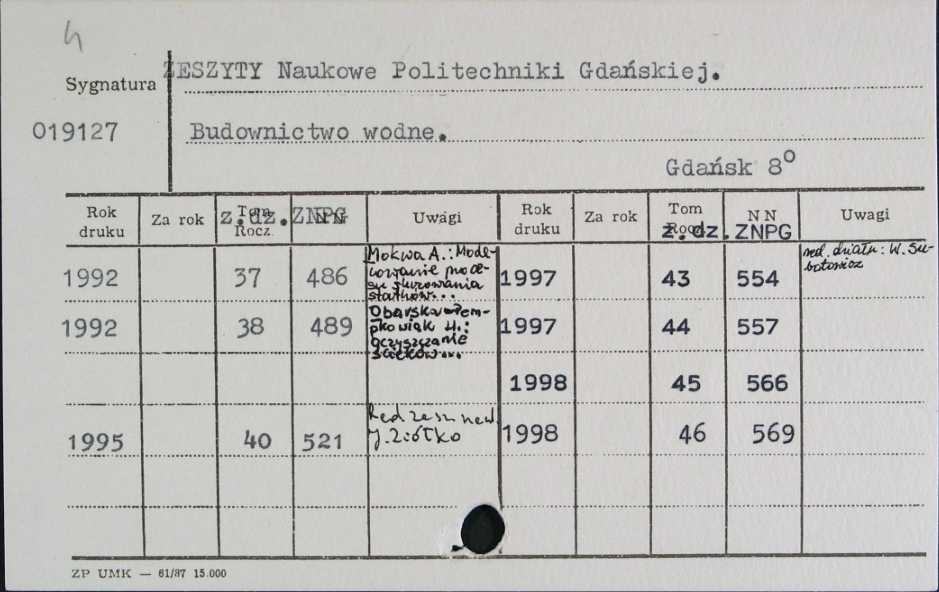 4
ZESZYTY Naukowe Politechniki Gdańskiej.
Sygnatura
019127 Budownictwo wodne.
Gdańsk 8°
Rok druku Za rok Tom Rocz. z.dz. NN ZNPG Uwagi Rok druku Za rok Tom Rocz. z.dz. NN ZNPG Uwagi
1992 37 486 Mokwa A.: Mode-
lowanie proce-
su śluzowania
statków... 1997 43 554 red. działu: W. Su-
botowicz
1992 38 489 Obarska-Pem-
pkowiak H.:
oczyszczanie
ścieków... 1997 44 557
1998 45 566
1995 40 521 Red zesz. nauk.
J. Ziółko 1998 46 569
ZP UMK — 61/87 15.000